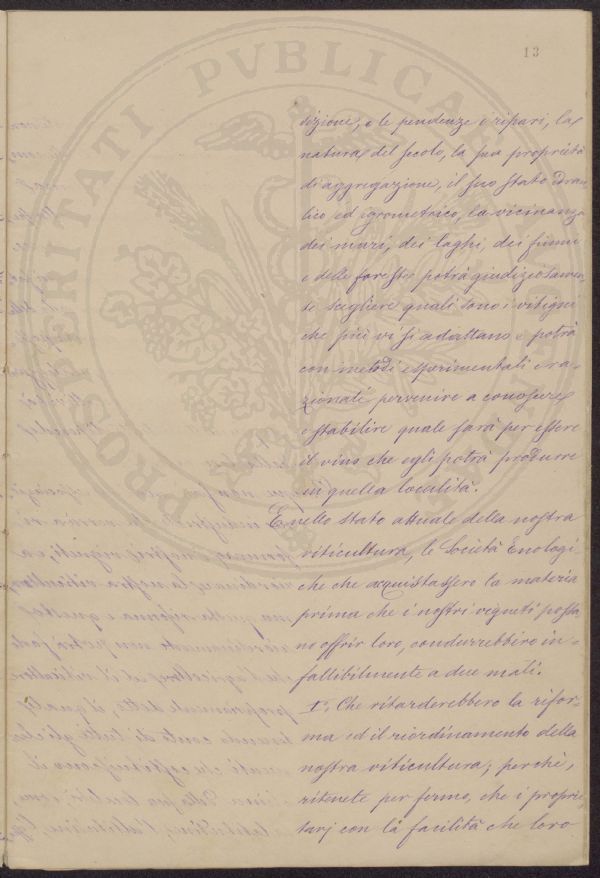 13
PROSPERITATI PVBLICAE
dizione, e le pendenze e ripari, la
natura del secolo, la sua proprietà
di aggregazione, il suo stato Drau
lico ed igrometrico, la vicinanza
dei mari, dei laghi, dei fiumi
e delle foreste potrà giudiziosamen
te scegliere quali sono i vitigni
che più vi si adattano e potrà
con metodi esperimentali e ra-
zionali pervenire a conoscere
e stabilire quale sarà per essere
il vino che egli potrà produrre
in quella località.
E nello stato attuale della nostra
viticultura, le Società Enologi-
che che acquistassero la materia
prima che i nostri vigneti posso
no offrir loro, condurrebbero in-
fallibilmente a due mali.
I°. Che ritarderebbero la rifor-
ma ed il riordinamento della
nostra viticultura; perchè,
ritenete per fermo, che i proprie
tarj con la facilità che loro